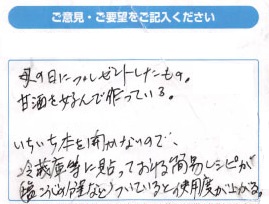 ご意見・ご要望をご記入ください
母の日にプレゼントしたもの。
甘酒を好んで作っている。
いちいち本を開かないので、
冷蔵庫等に貼っておける簡易レシピが
(塩こうじの分量など)ついていると使用度が上がる。